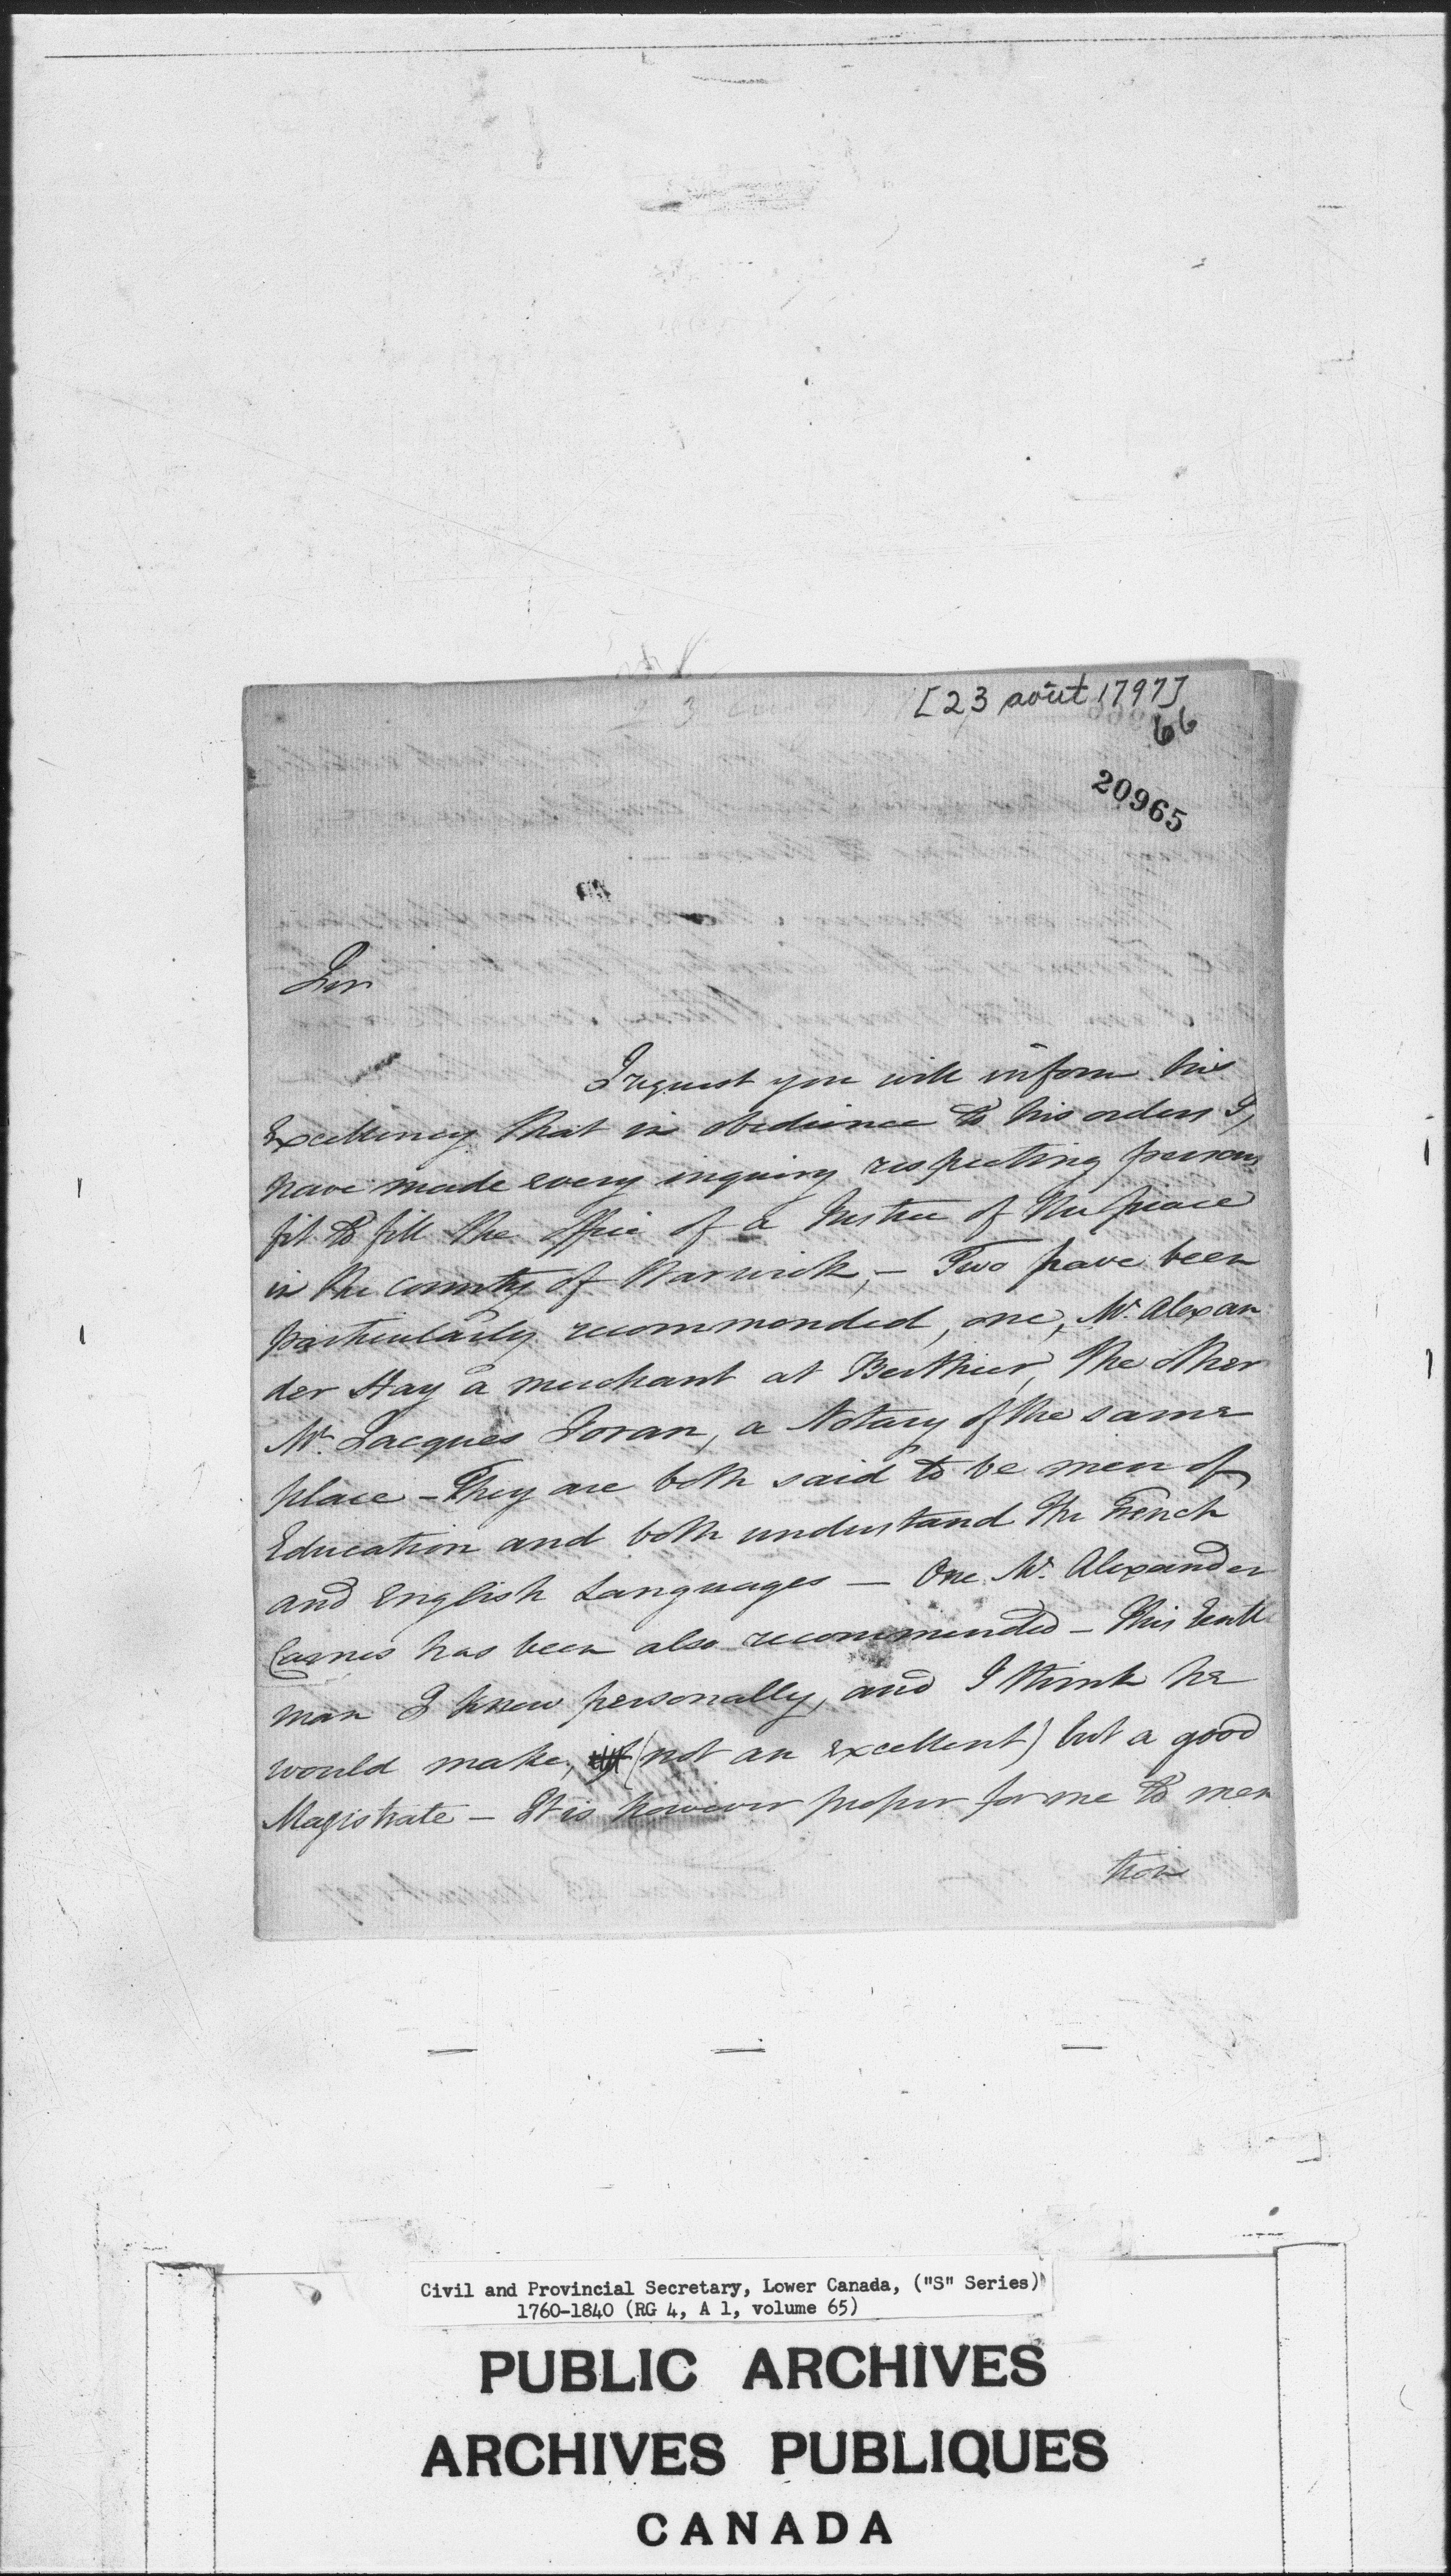 [23 août 1797]
66
20965
Sir
I request you will inform his
Excellency that in obedience to his orders I,
have made every inquiry respecting persons
fit to fill the office of a Justice of the peace
in the county of Warwick, – Two have been
particularly recommended, one, Mr. Alexan
der Hay a merchant at Berthier, the other
Mr. Jacques Joran, a Notary of the same
place – They are both said to be men of
Education and both understand the French
and English Languages – One Mr. Alexander
Cairnes has been also recommended – This Gentle
man I know personally, and I think he
would make, (not an excellent) but a good
Magistrate – It is however proper for me to men
tion
Civil and Provincial Secretary, Lower Canada, ("S" Series)
1760-1840 (RG 4, A 1, volume 65)
PUBLIC ARCHIVES
ARCHIVES PUBLIQUES
CANADA